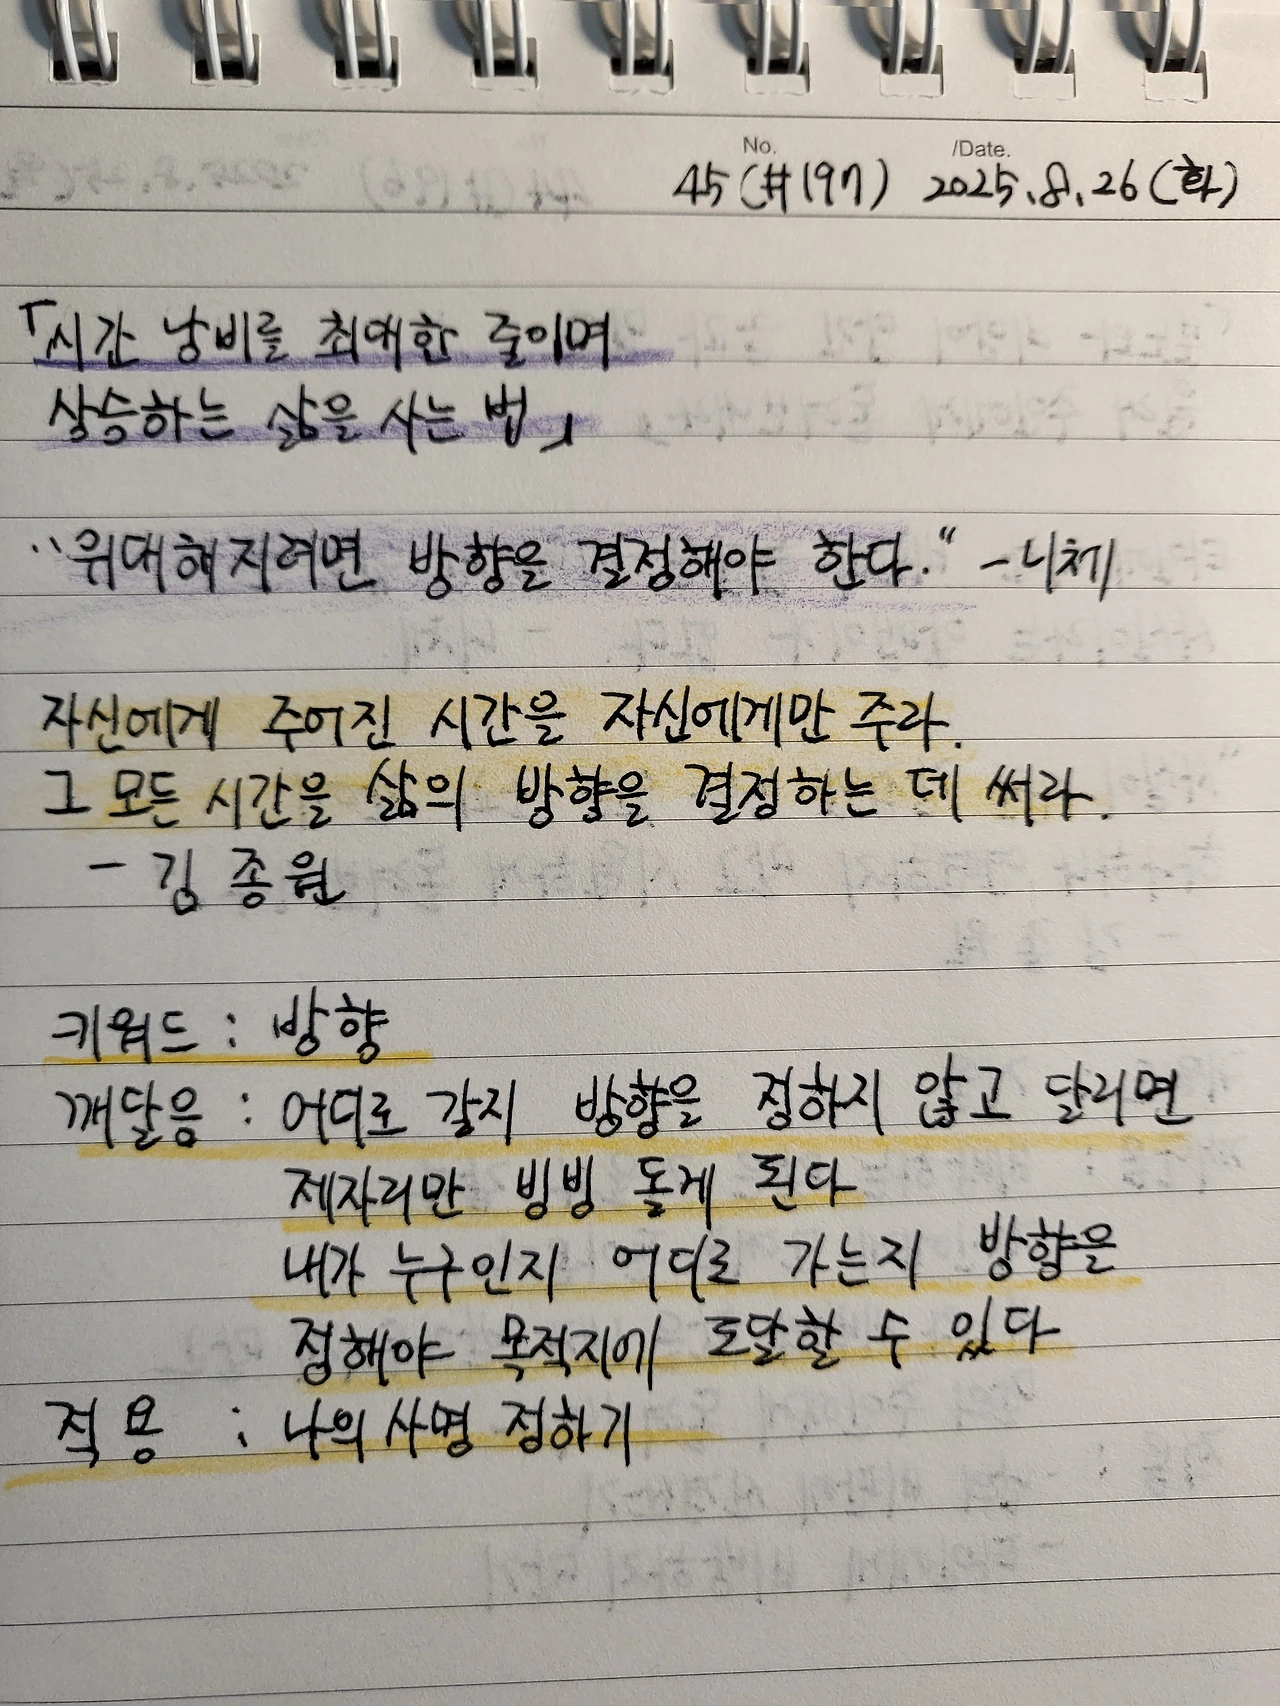 No. /Date.
45(#197) 2025.8.26(화)
「시간 낭비를 최대한 줄이며
상승하는 삶을 사는 법」
"위대해지려면 방향을 결정해야 한다." - 니체
자신에게 주어진 시간을 자신에게만 주라.
그 모든 시간을 삶의 방향을 결정하는 데 써라.
- 김종원
키워드 : 방향
깨달음 : 어디로 갈지 방향을 정하지 않고 달리면
제자리만 빙빙 돌게 된다
내가 누구인지 어디로 가는지 방향을
정해야 목적지에 도달할 수 있다
적용 : 나의 사명 정하기